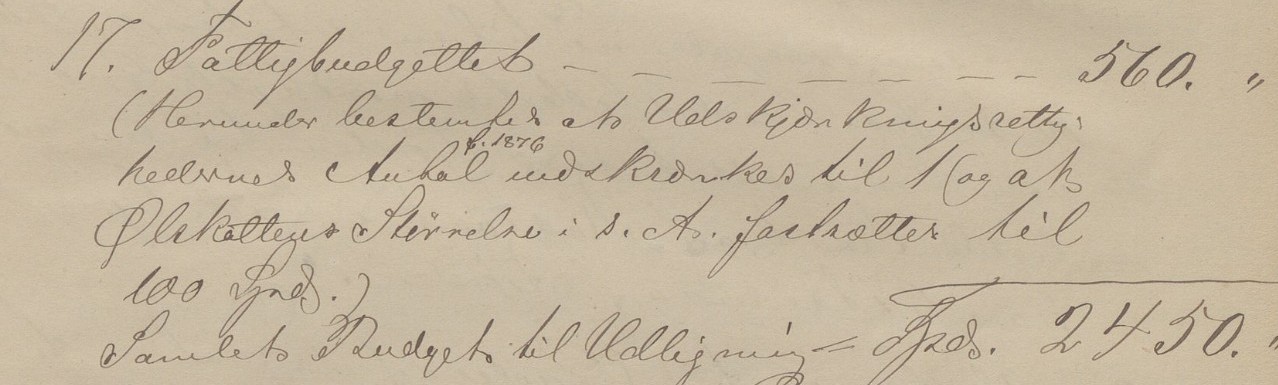 17. Fattigbudgettet — — — — — — — 560. "
(Herunder bestemtes at Udskjænkningsrettig-
f. 1876
hedernes Antal indskrænkes til 1 (og at
Ølskattens Størrelse i s. A. fastsættes til
100 Spd.)
Samlet Budget til Udligning = Spd. 2450. "